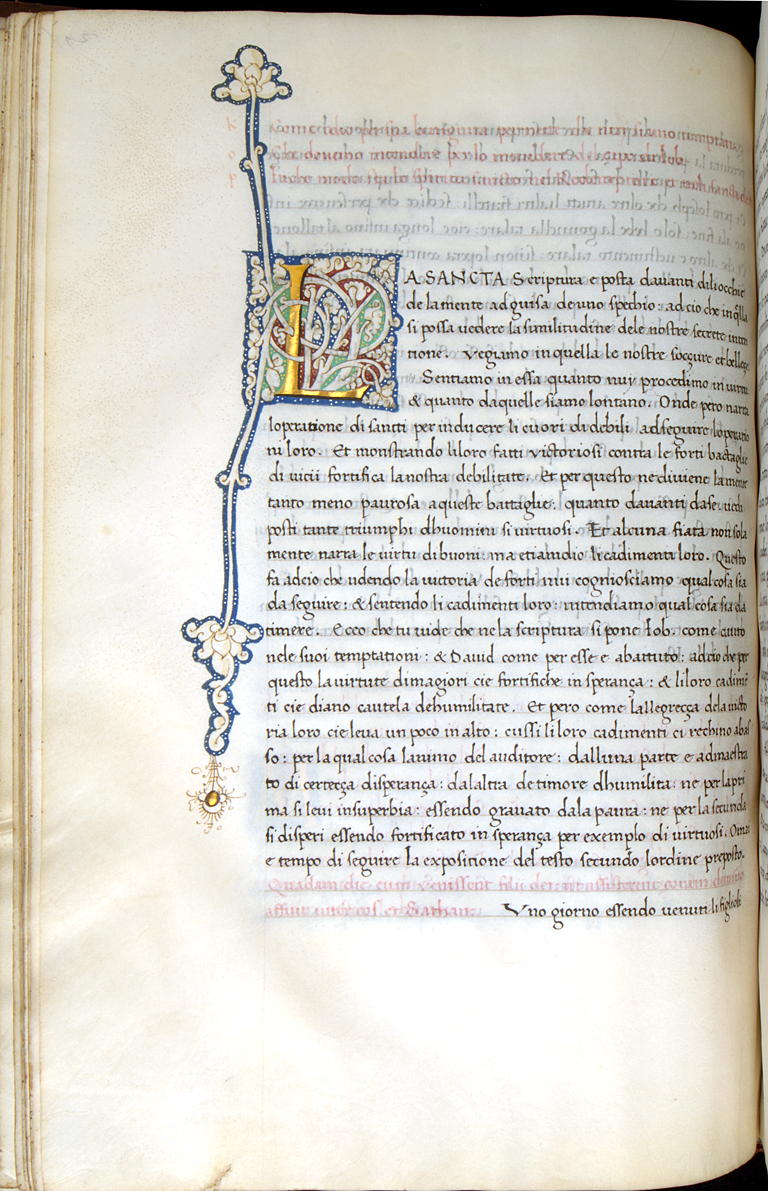 LA SANCTA Scriptura e posta davanti diliocchi
de la mente ad guisa de uno spechio: adcio che in qlla
si possa uedere la similitudine dele nostre secrete inten
tione. Vegiamo in quella le nostre soççure et belleçe
Sentiamo in essa quanto nuy procedimo in uirtu
& quanto da quelle siamo lontano. Onde pero narra
loperatione di sancti per inducere li cuori di debili adseguire loperatio
ni loro. Et monstrando li loro fatti victoriosi contra le forti battaglie
di uicii fortifica la nostra debilitate. Et per questo ne diviene la mente
tanto meno paurosa a queste battaglie: quanto davanti da se uede
posti tante triumphi dhuomini si virtuosi. Et alcuna fiata non sola
mente narra le virtu di buoni: ma etiamdio li cadimenti loro. Questo
fa adcio che udendo la uictoria de forti nui cogniosciamo qual cosa sia
da seguire: & sentendo li cadimenti loro: intendiamo qual cosa sia da
timere. Ecco che tu uide che ne la scriptura si pone Iob. come
nele suoi temptationi: & David come per esse e abattuto: adcio che per
questo la uirtute di magiori cie fortifiche in sperança: & li loro cadime
ti cie diano cautela dehumilitate. Et pero come lallegreçça dela uicto
ria loro cie leua un poco in alto: cussi li loro cadimenti ci rechino abas
so: per la qual cosa lanimo del auditore: dalluna parte e admaestra
to di certeçça disperança: dalaltra de timore dhumilita: ne per la pri
ma si leui in superbia: essendo gravato dala paura: ne per la secunda
si disperi essendo fortificato in sperança per exemplo di virtuosi.
e tempo di seguire la expositione del testo secundo lordine preposto.
Quadam die cum venissent filii dei: ut assisterent coram domino
affuit inter eos et Sathan. Vno giorno essendo venuti li figlioli